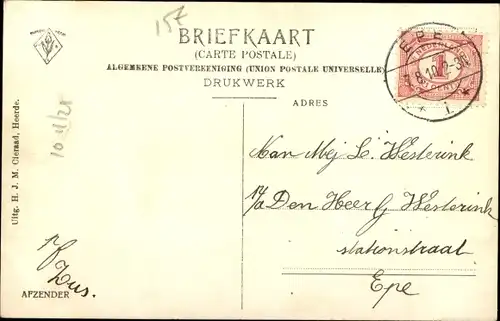 157
BRIEFKAART
(CARTE POSTALE)
ALGEMEENE POSTVEREENIGING (UNION POSTALE UNIVERSELLE)
DRUKWERK
ADRES
EPE
NEDERLAND
1
CENT
Uitg. H. J. M. Cieraad, Heerde.
Aan Mej L. Westerink
p/a Den Heer G Westerink
stationstraat
Epe
Zus.
AFZENDER